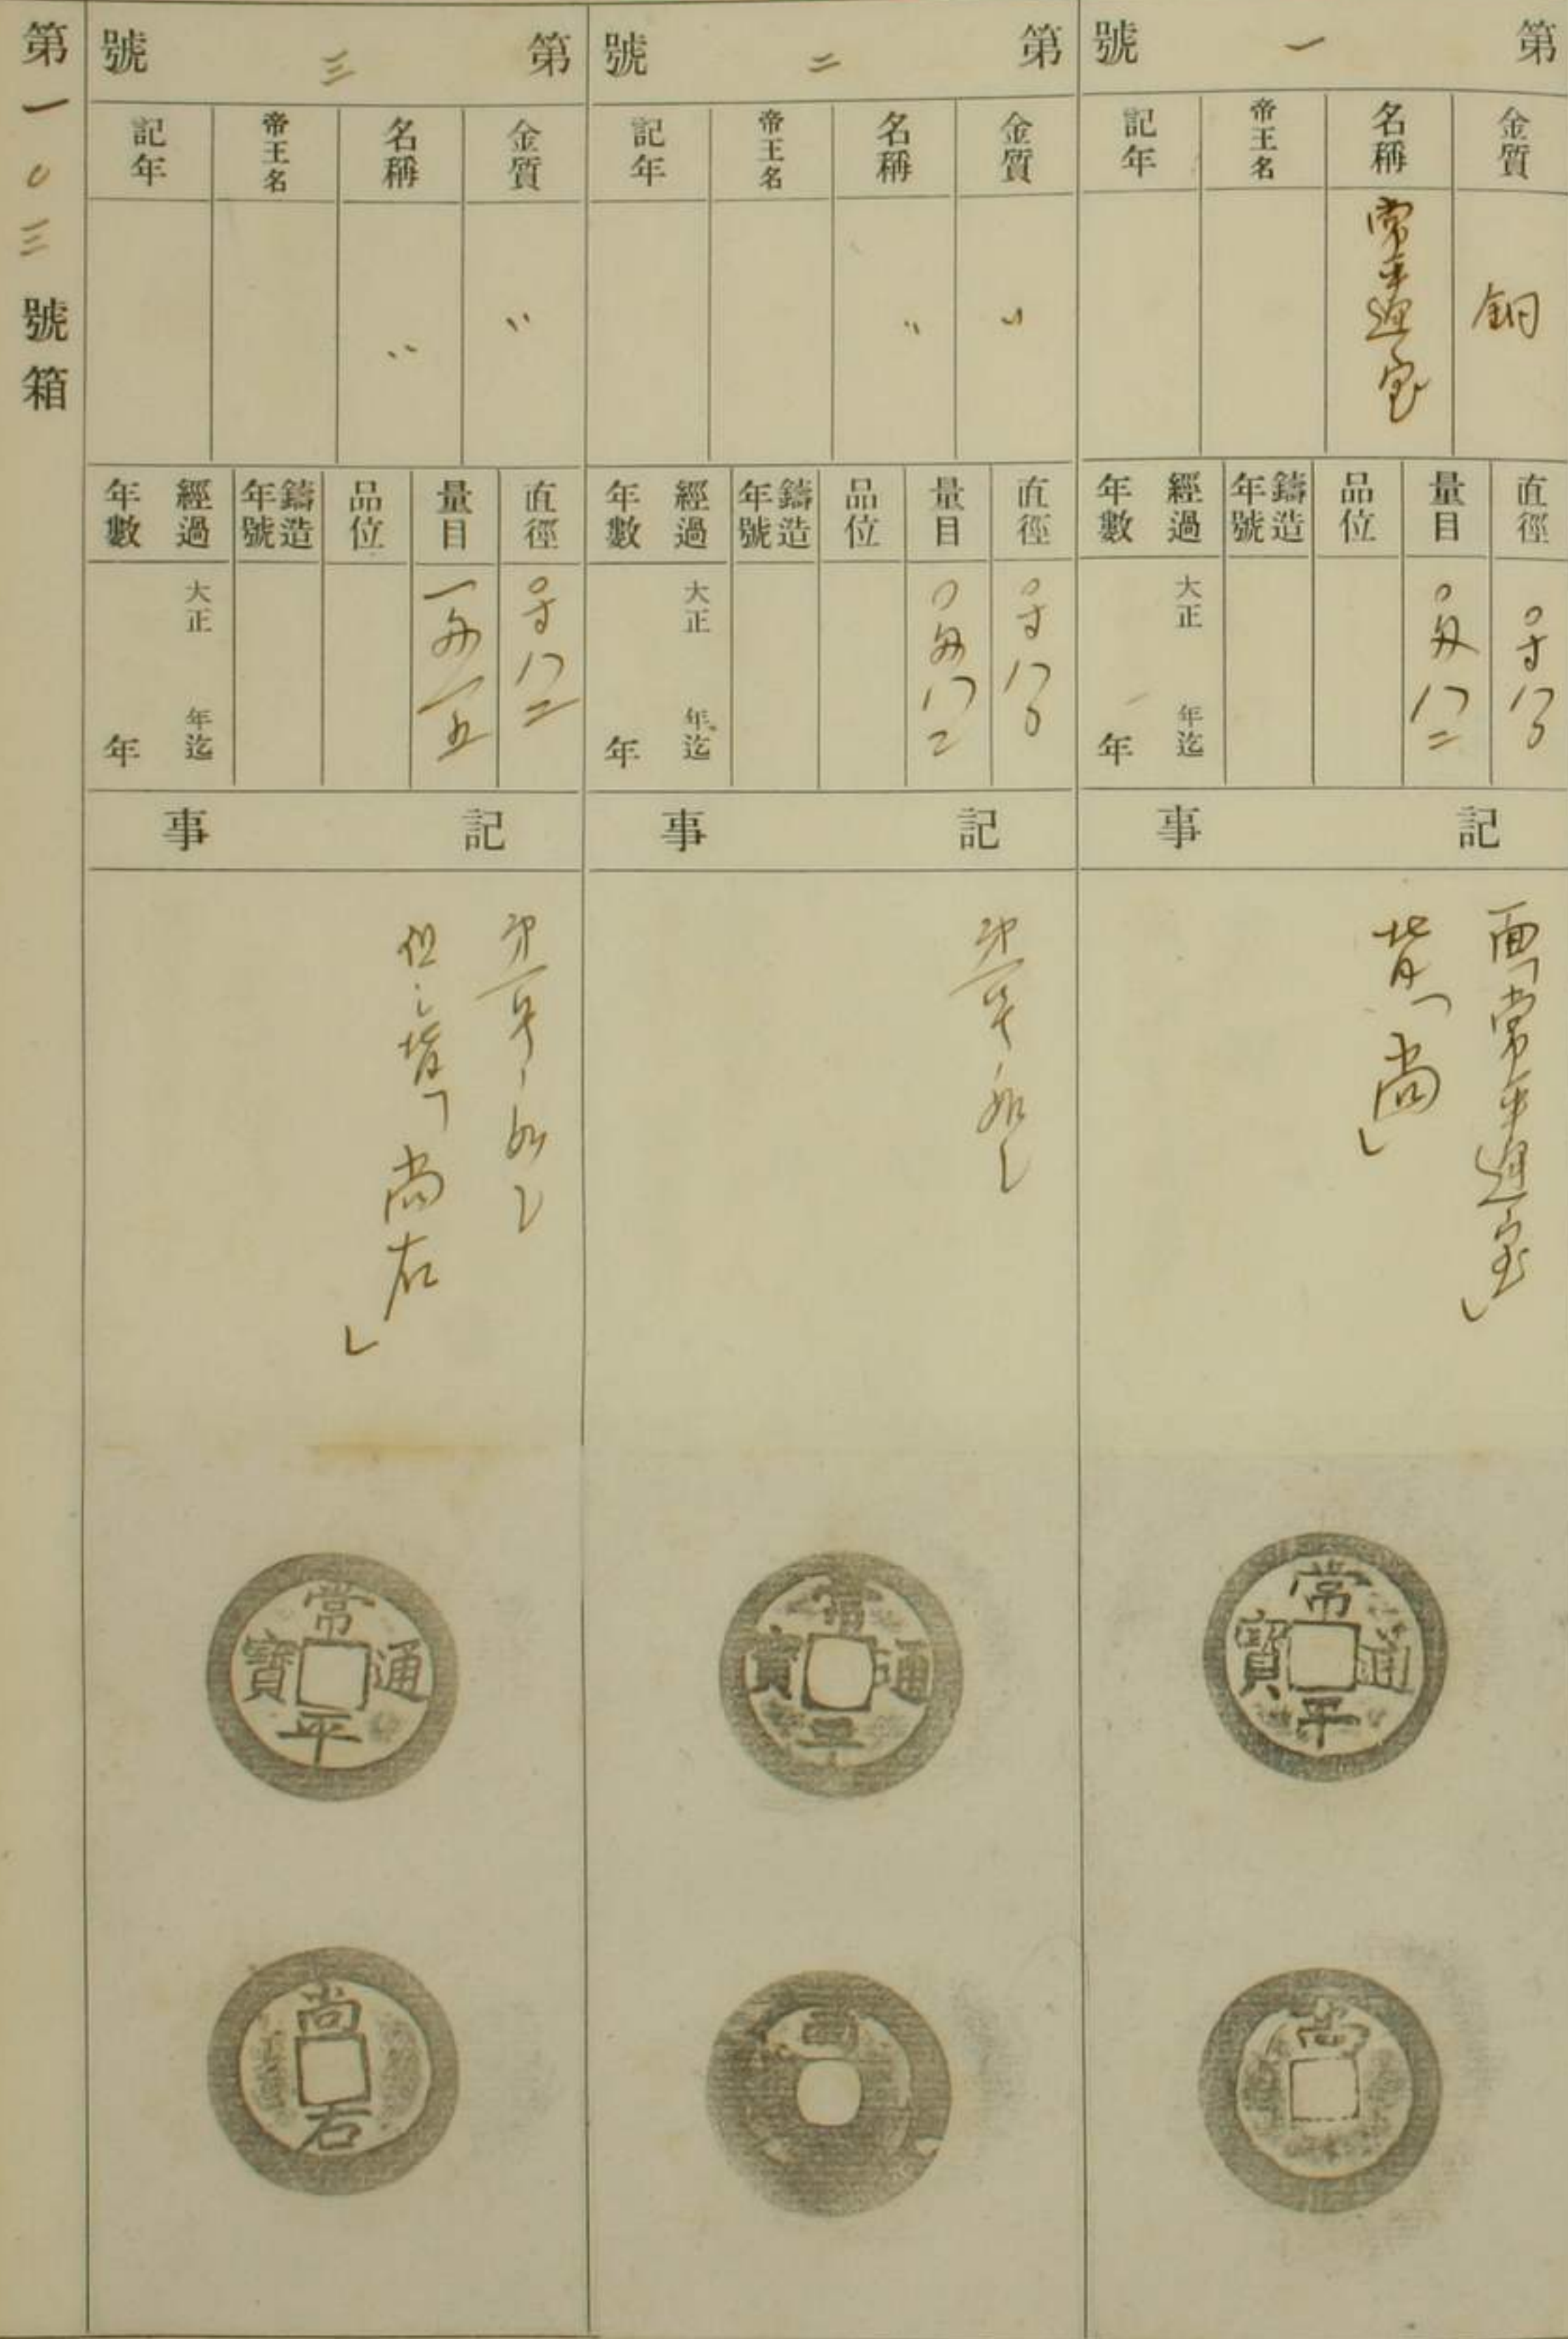 第一號
金質
名稱
帝王名
記年
銅
常平通宝
直徑
量目
品位
鑄造年號
經過年數
〇寸八〇
〇匁八二
大正 年迄
年
記事
面「常平通宝」
背「尚」
常平通寶
尚
第二號
金質
名稱
帝王名
記年
〃
〃
直徑
量目
品位
鑄造年號
經過年數
〇寸八〇
〇匁八二
大正 年迄
年
記事
如シ
常平通寶
尚
第三號
金質
名稱
帝王名
記年
〃
〃
直徑
量目
品位
鑄造年號
經過年數
〇寸八二
一匁一五
大正 年迄
年
記事
如シ
但シ背「尚右」
常平通寶
尚右
第一〇三號箱